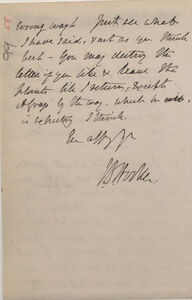 wrong way. Just see what
I have said, & act as you think
best — You may destroy the
letter if you like & leave the
plants till I return, except
by the way. which
is I think.
Ever aff yr
J D Hooker
99